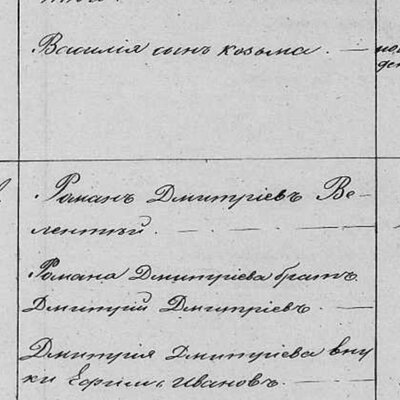 Василія сынъ козьма.
Романъ Дмитріевъ Ве-
лентный.
Романа Дмитріева братъ
Дмитрій Дмитріевъ
Дмитрія Дмитріева вну
ки Ефимъ, Ивановъ.